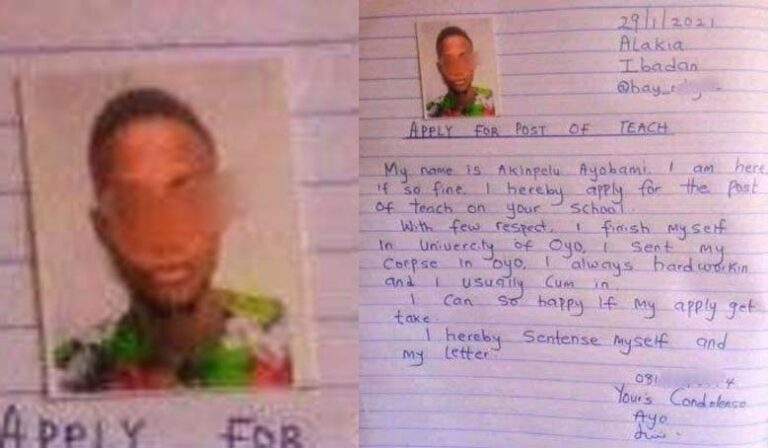 APPLY FOR
29/1/2021
Alakia
Ibadan
@bay_
APPLY FOR POST OF TEACH
My name is Akinpelu Ayobami. I am here
if so fine. I hereby apply for the post
of teach on your school.
With few respect, I finish myself
in Univercity of Oyo, I sent my
corpse in oyo, I always hardworkin
and I usually Cum in.
I can so happy If my apply get
take.
I hereby Sentense myself and
my letter.
081 4
Your's Condolense
Ayo